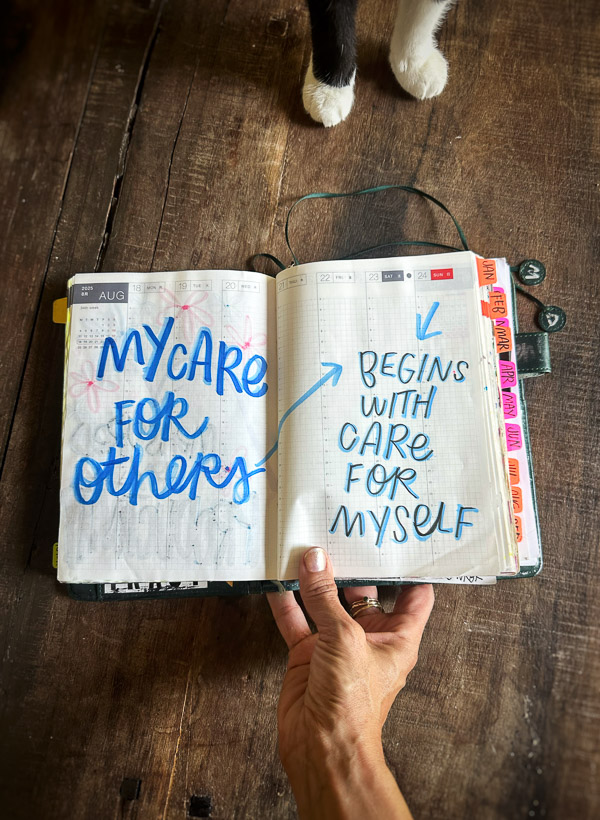 2025
8月 AUG
18 MON 月
19 TUE 火
20 WED 水
21 THU 木
22 FRI 金
23 SAT 土
24 SUN 日
MY CARE
FOR
others
BEGINS
WITH
CARe
FOR
MYSeLF
JAN
FEB
MAR
APR
MAY
JUN
JUL
AUG
SEP
M